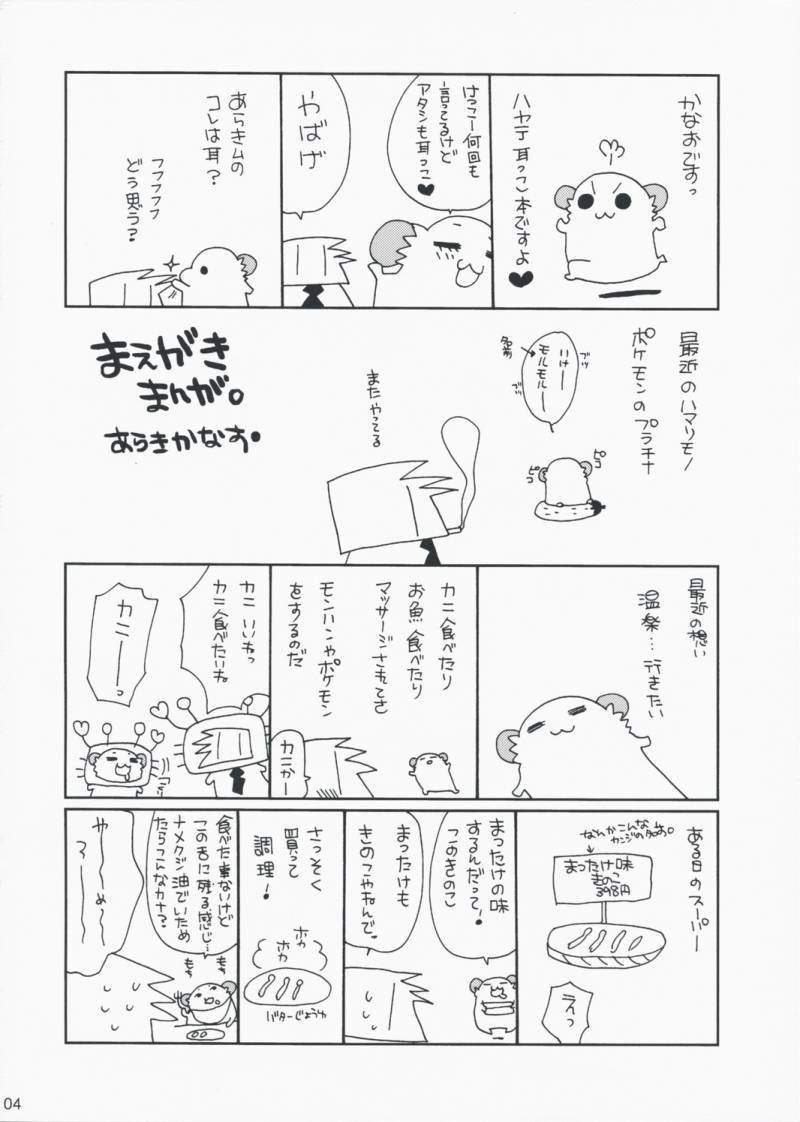 かなおですっ
ハヤテ耳っこ本ですよ♥
けっこー何回も
言ってるけど
アタシも耳っこ♥
やばげ
あらきムの
コレは耳？
フフフフフ
どう思う？
最近のハマリモノ
ポケモンのプラチナ
いけー
モルモルー
名前
ブツ
ブツ
ピコ
ピコ
またやってる
まえがき
まんが。
あらきかなお。
最近の想い
温泉…行きたい
カニ食べたり
お魚食べたり
マッサージされてさ
モンハンやポケモン
をするのだ
カニかー
カニいいねっ
カニ食べたいね
カニーーっ
ある日のスーパー
なんかこんな
カンジの名前。
まったけ味
きのこ
398円
えっ
まったけの味
するんだって！
このきのこ
まったけも
きのこやねんで。
さっそく
買って
調理！
ホカ
ホカ
バターじょうゆ
食べた事ないけど
この舌に残る感じ…
ナメクジ油でいため
たらこんなカナ？
もぎ
もぎ
やーめーろー
04